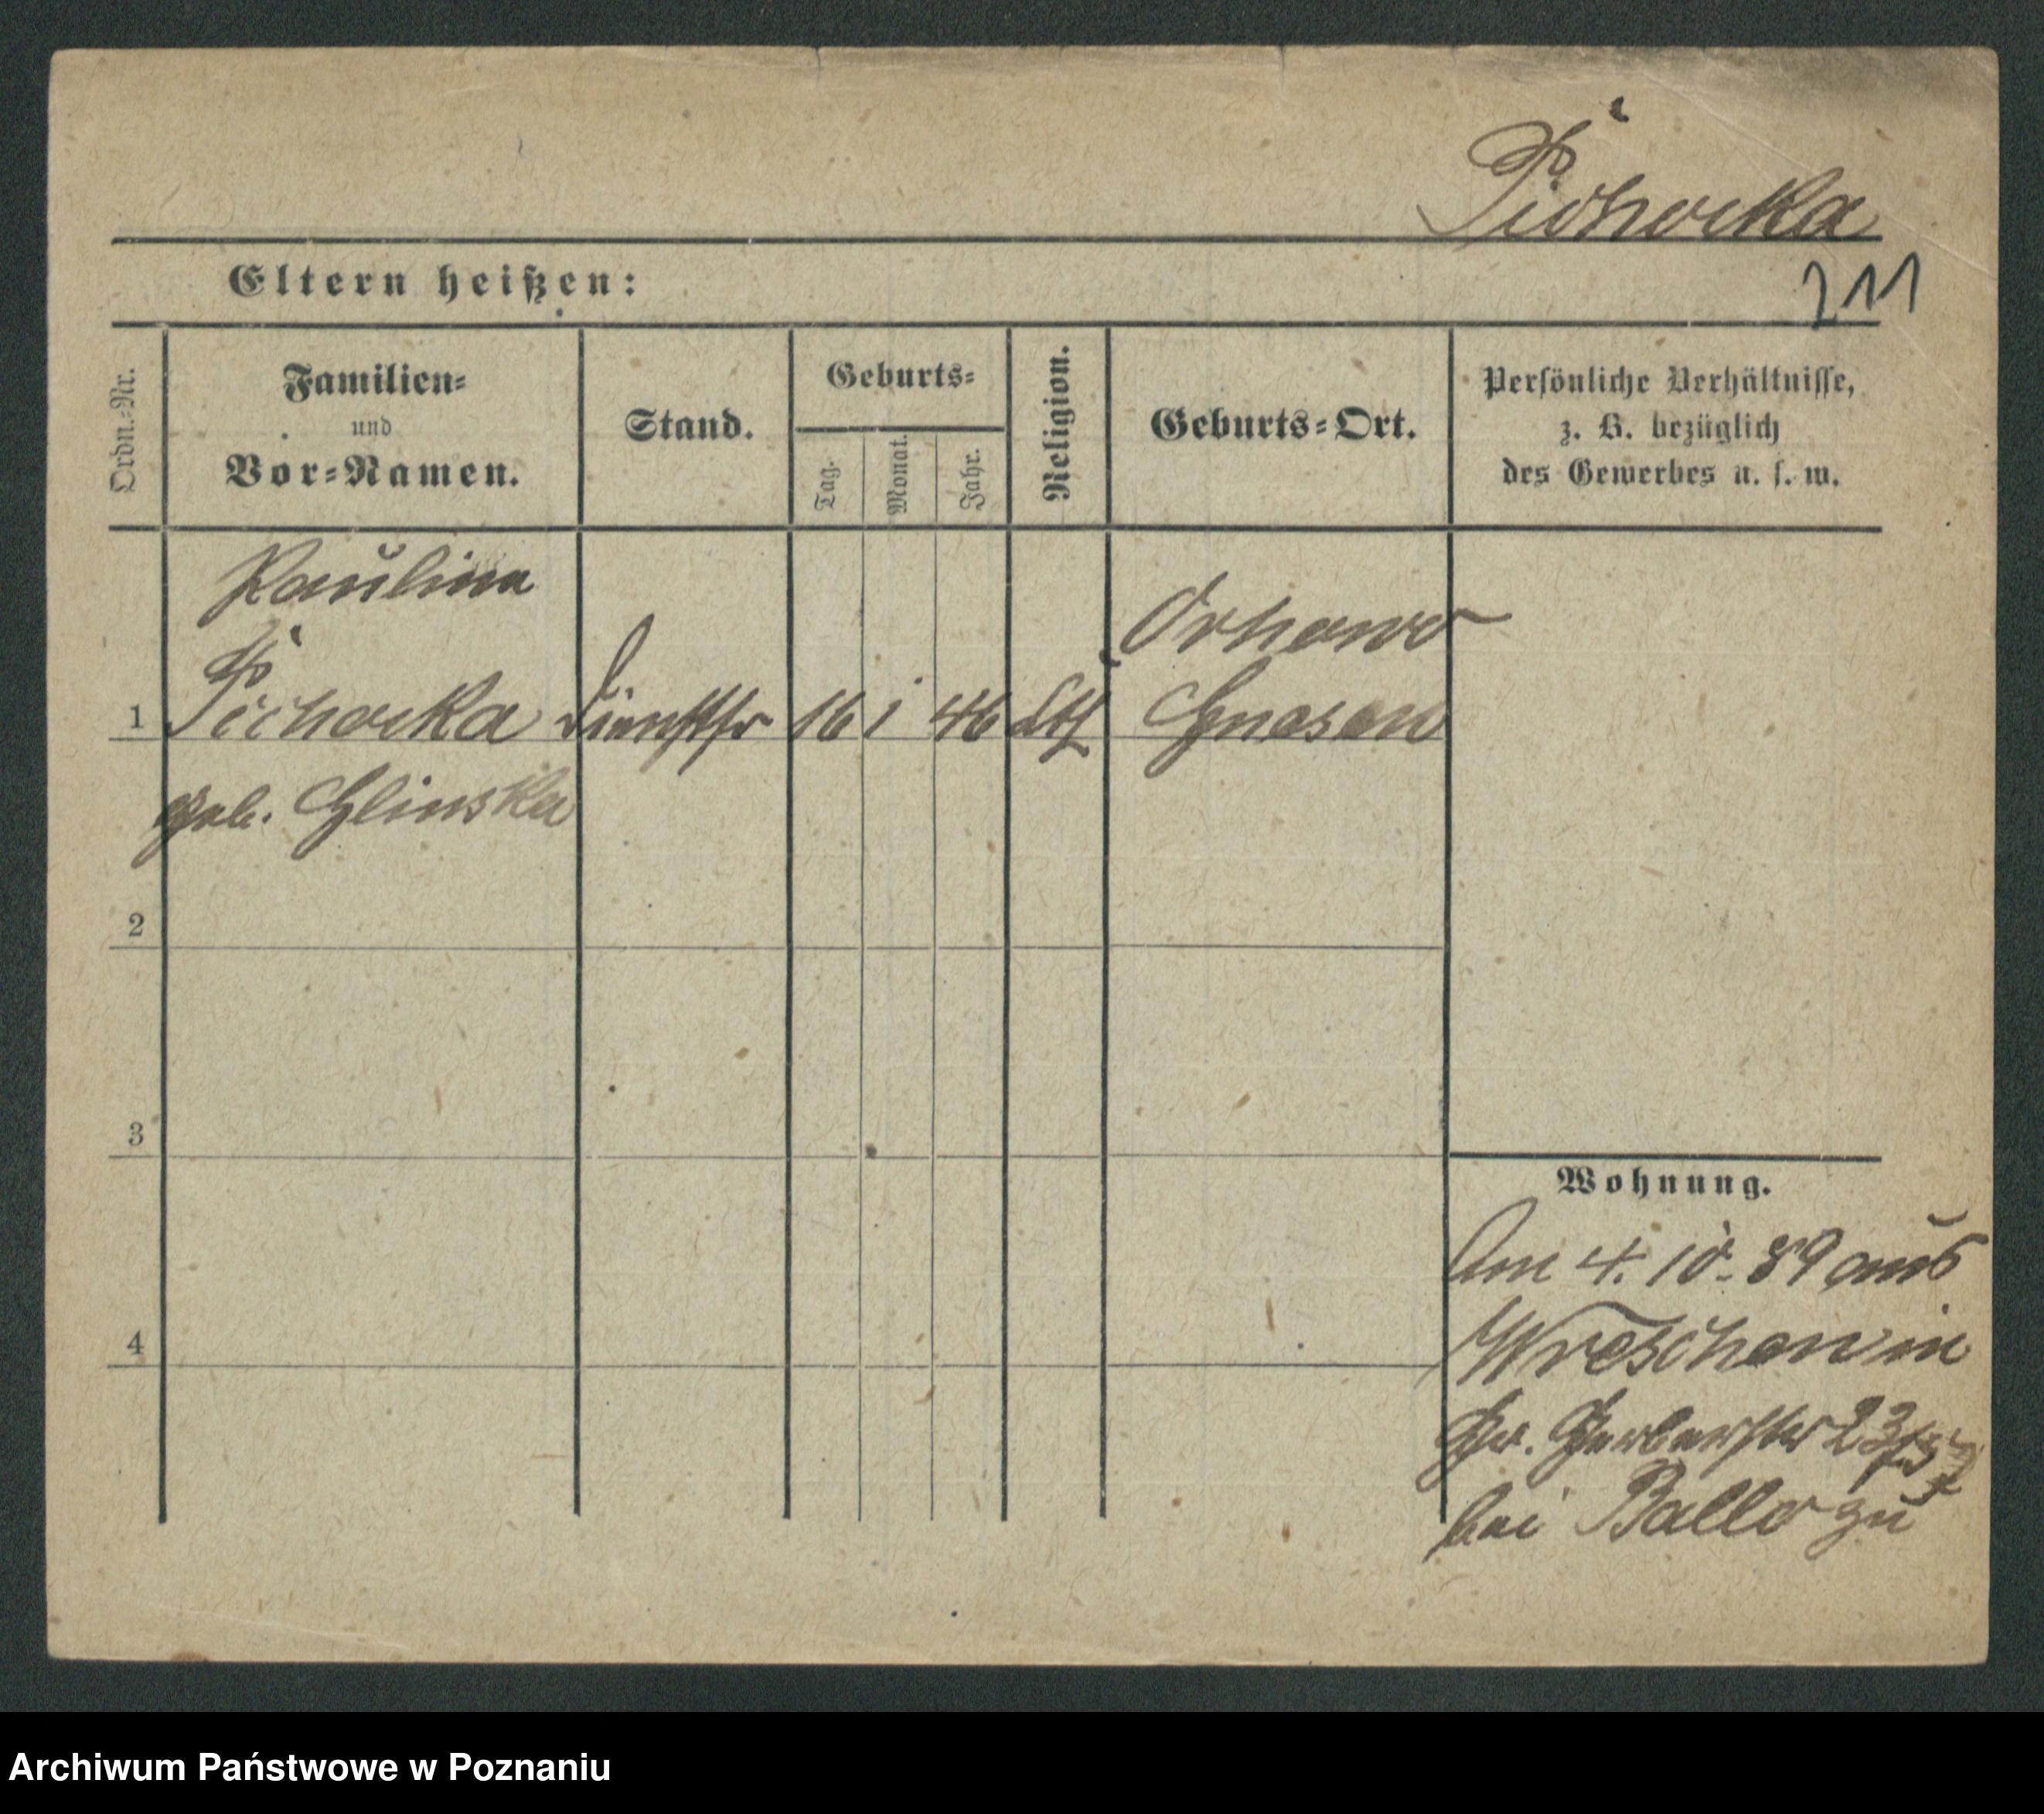 Pichocka
211
Eltern heißen:
Ordn.=Nr.
Familien=
und
Vor=Namen.
Stand.
Geburts=
Tag.
Monat.
Jahr.
Religion.
Geburts=Ort.
Persönliche Verhältnisse,
z. B. bezüglich
des Gewerbes u. s. w.
Paulina
1 Pichocka 16 1 46 Kth
geb. Glinska
Orhowo
Gnesen
2
3
4
Wohnung.
Am 4. 10. 89 aus
Wreschen in
Gr. Gerberstr 23
bei Ballo zu
Archiwum Państwowe w Poznaniu